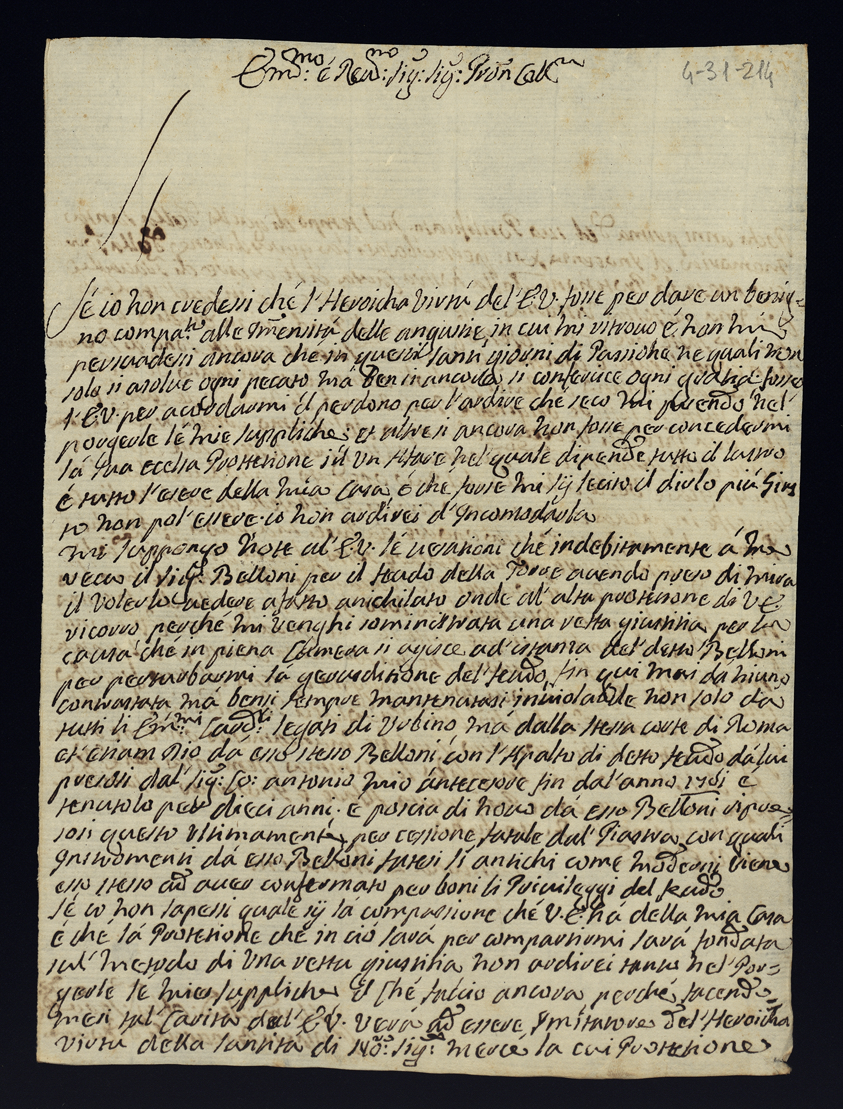 Em.mo é Reu.mo Sig: Sig: Pron Coll.mo
4-31-214
Sé io non credessi ché l'Heroicha virtú del'E.V. fosse per dare un benig-
no compa.to alle Immensitá delle angustie in cui mi ritrouo é non mi
persuadessi ancora che in questi santi giorni di Passione ne quali non
solo si asolue ogni pecato má bensi ancora si conferisce ogni gratia fosse
l'E.V. per acordarmi il perdono per l'ardire ché seco mi prendo nel
porgerle lé mie suppliche; et altresi ancora non fosse per concedermi
lá sua ecelsa Protetione in un affare nel quale dipende tutto il lustro
é tutto l'essere della mia Casa é che forse mi sij lecito il dirlo piú Gius
to non pol'essere io non ardirei d'Incomodarla
mi suppongo note al'E.V. lé uesationi ché indebitamente á me
reca il Sig.r Belloni per il feudo della Torre auendo preso di mira
il volerlo uedere afatto anichilato onde al'alta protetione di V.E.
ricorro perché mi venghi soministrata una retta giustitia per la
causa ché in piena Camera si agisce ad'istanza del'detto Belloni
per perturbarmi lá gerisditione del'feudo, fin qui mai dá niuno
contrastata má bensi sempre mantenutasi inuiolabile non solo da
tutti li Em.mi Card.li legati di Vrbino má dalla stessa corte di Roma
et etiam Dio da esso stesso Belloni con l'Apalto di detto feudo dá lui
presosi dal'Sig: Co: antonio mio antecesore fin dal'anno 1701 é
tenutolo per dieci anni é poscia di nouo dá esso Belloni ripre-
sosi questo vltimamente per cessione fatale dal'Piastra con quali
Instromenti dá esso Belloni fattosi sí antichi come moderni viene
esso stesso ad auer confermato per boni li Priuileggi del feudo
Sé io non sapessi quale sij lá compassione ché V.E. há della mia Casa
é ché lá Protetione che in ció sará per compartirmi sará fondata
sul'metodo di una retta giustitia non ardirei tanto nel'Por-
gerle lé mie suppliche Il ché faccio ancora perché facendo-
mesi tal'Caritá dal'E.V. verá ad essere Imitatore del'Heroicha
virtú della santitá di Nro: Sig.re mercé la cui Protetione